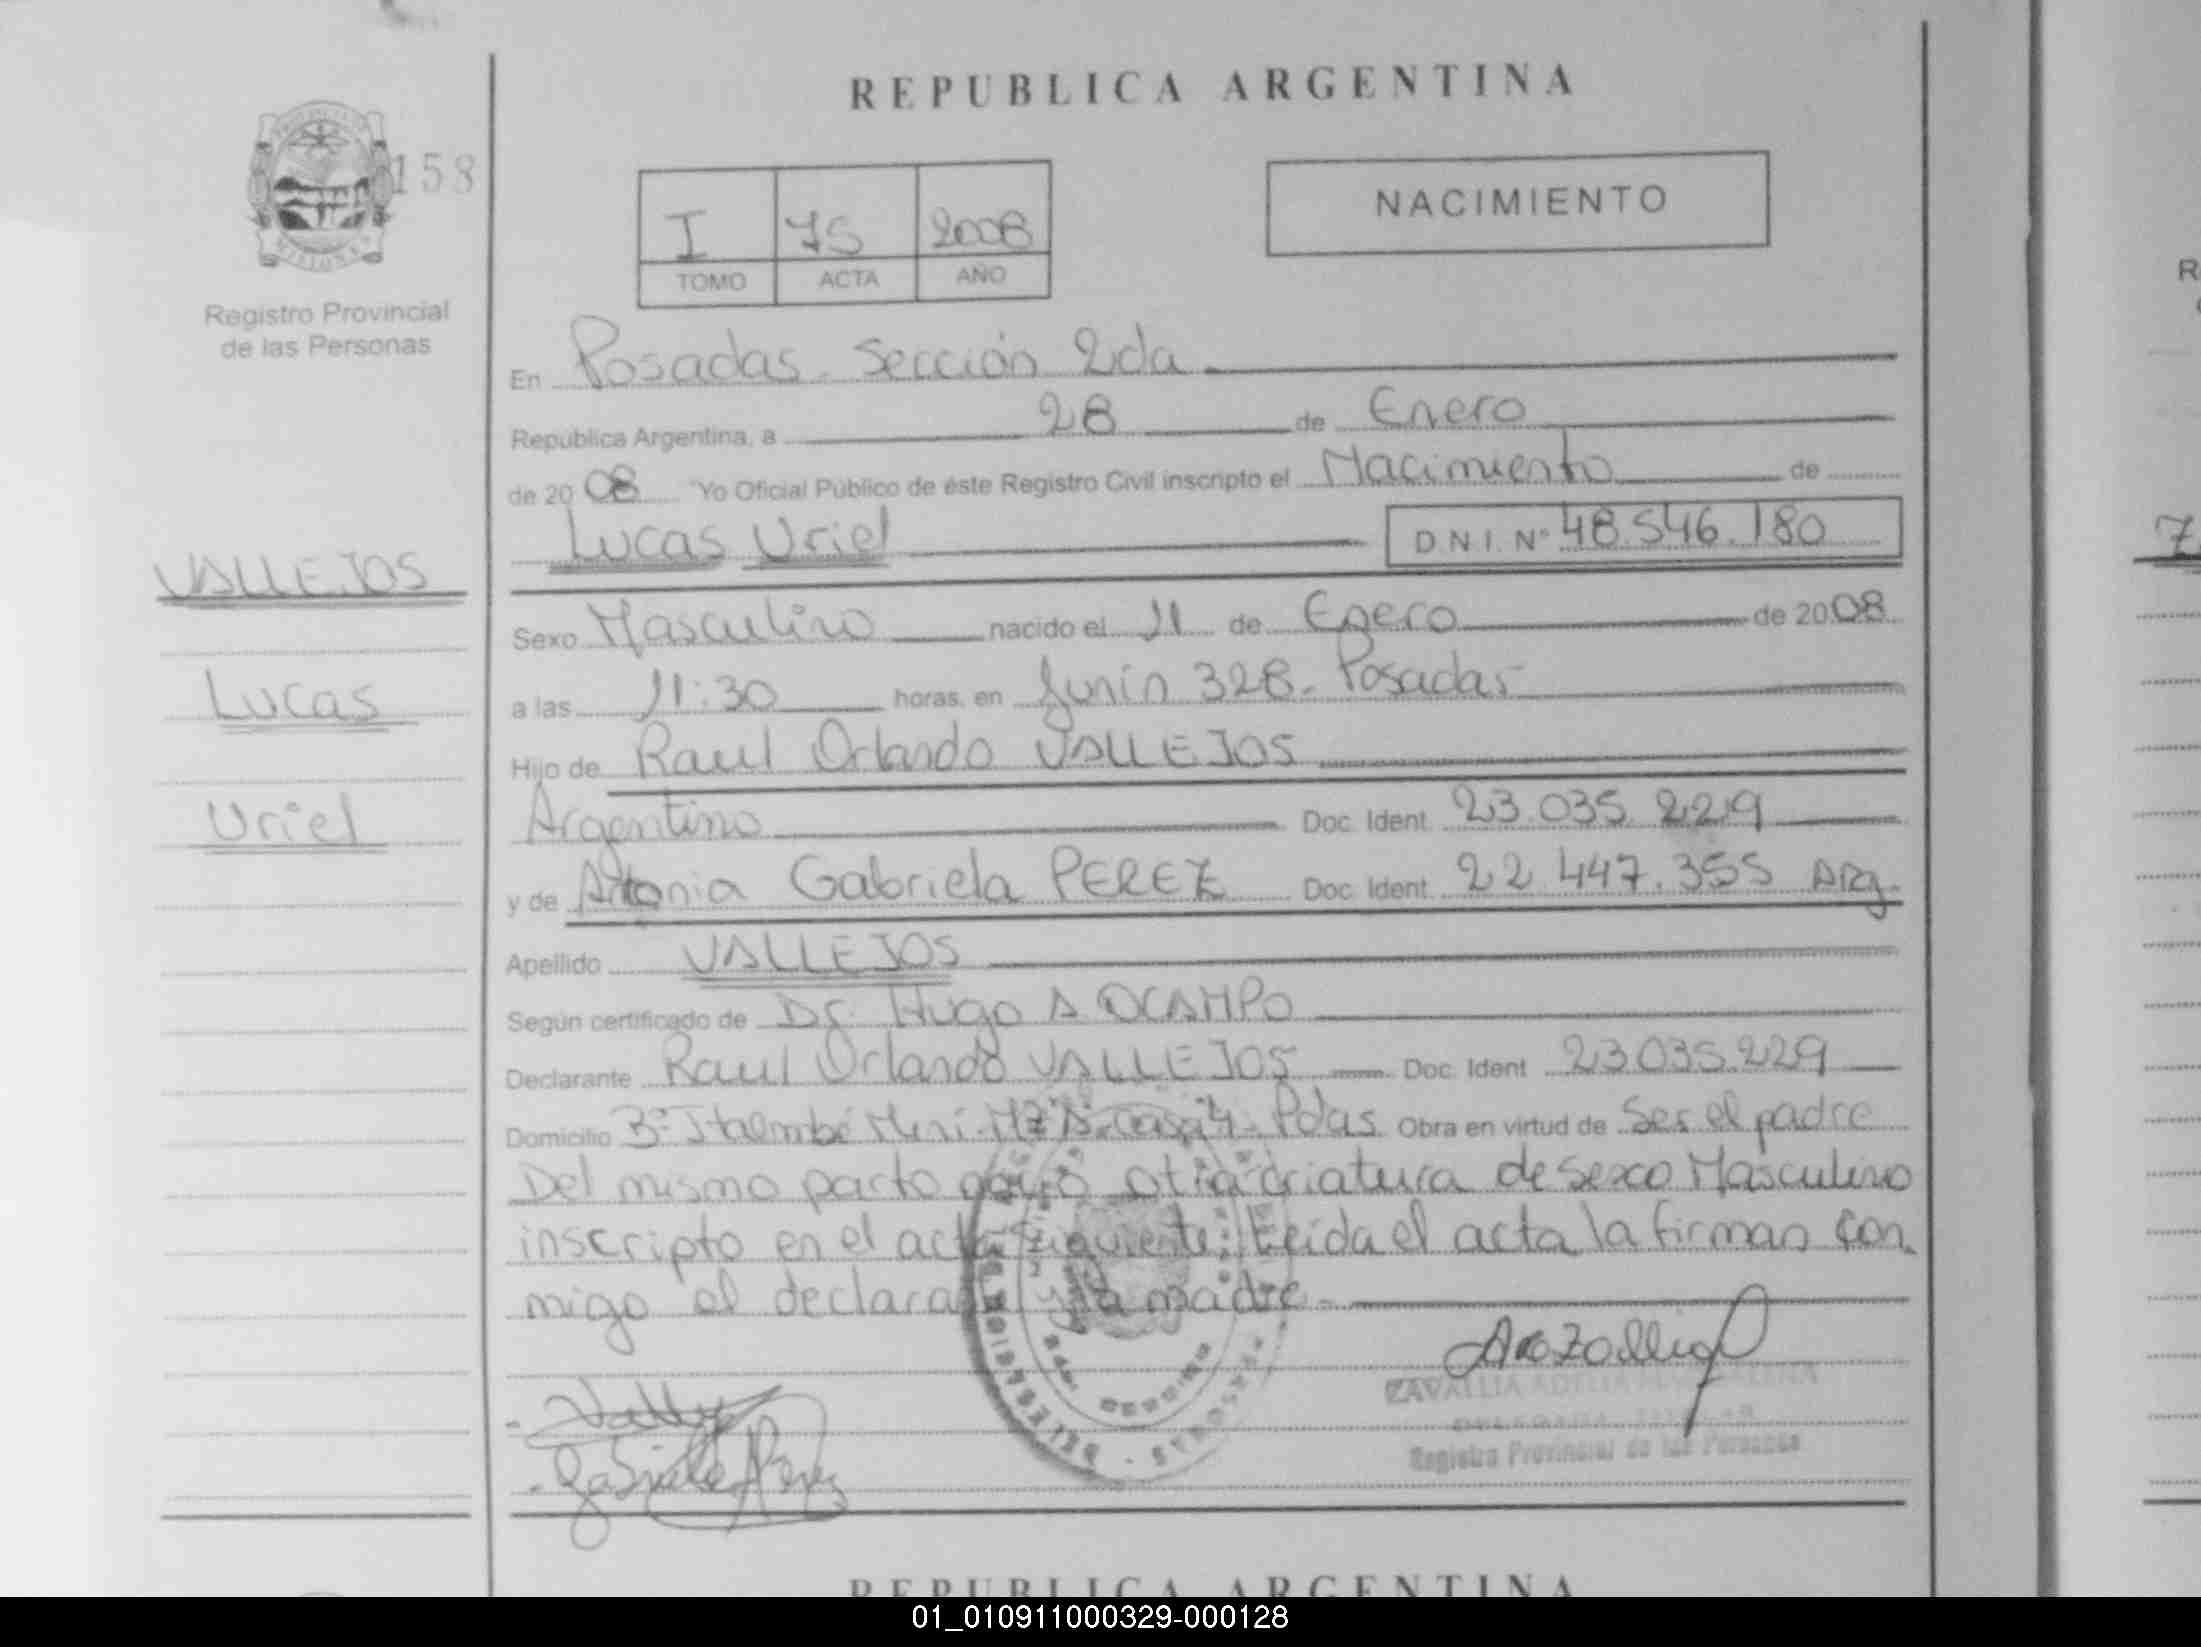 REPUBLICA ARGENTINA
158
NACIMIENTO
I 75 2008
TOMO ACTA AÑO
Registro Provincial
de las Personas
En Posadas. Sección 2da
República Argentina, a 28 de Enero
de 20 08 Yo Oficial Público de éste Registro Civil inscripto el Nacimiento de
Lucas Uriel D N I. Nº 48.546.180
VALLEJOS
Lucas
Uriel
Sexo Masculino nacido el 11 de Enero de 20 08
a las 11:30 horas, en Junín 328. Posadas
Hijo de Raul Orlando VALLEJOS
Argentino Doc. Ident. 23.035.229
y de Antonia Gabriela PEREZ Doc. Ident. 22.447.355 Arg.
Apellido VALLEJOS
Según certificado de Dr. Hugo A OCAMPO
Declarante Raul Orlando VALLEJOS Doc. Ident 23.035.229
Domicilio Bº Itaembé Miní Mz casa 4. Pdas Obra en virtud de Ser el padre
Del mismo parto nació otra criatura de sexo Masculino
inscripto en el acta siguiente: Leída el acta la firman con
migo el declarante y la madre.
ZAVALLIA ADELIA MAGDALENA
Registro Provincial de las Personas
Gabriela Perez
REPUBLICA ARGENTINA
01_010911000329-000128